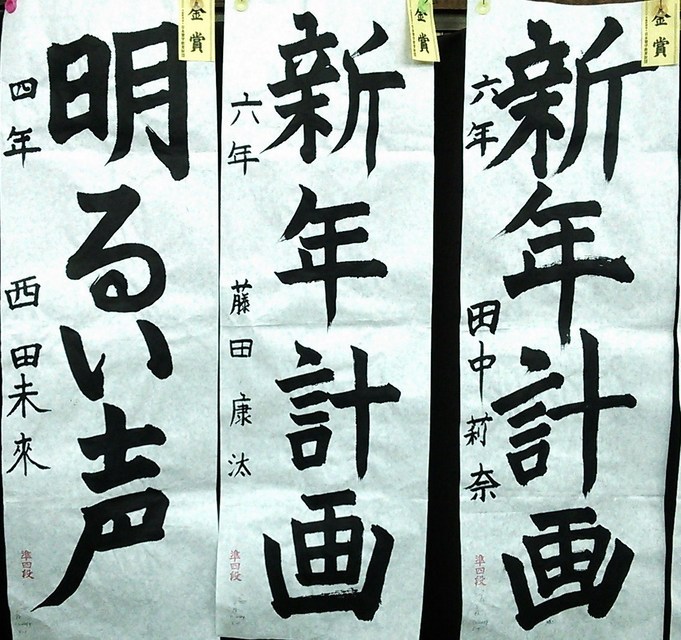 金賞
新年計画
六年 田中莉奈
準四段
金賞
新年計画
六年 藤田康汰
準四段
金賞
明るい声
四年 西田未來
準四段